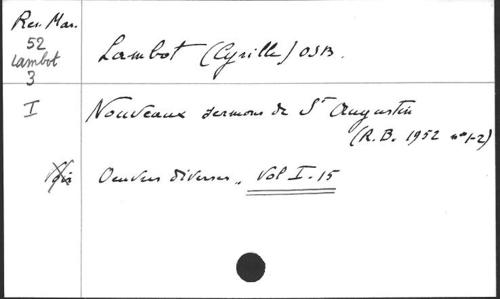 Rev. Mar.
52
Lambot
3
I
Lambot (Cyrille) OSB.
Nouveaux sermons de St Augustin
(R.B. 1952 n° 1-2)
Oeuvres diverses, Vol I-15